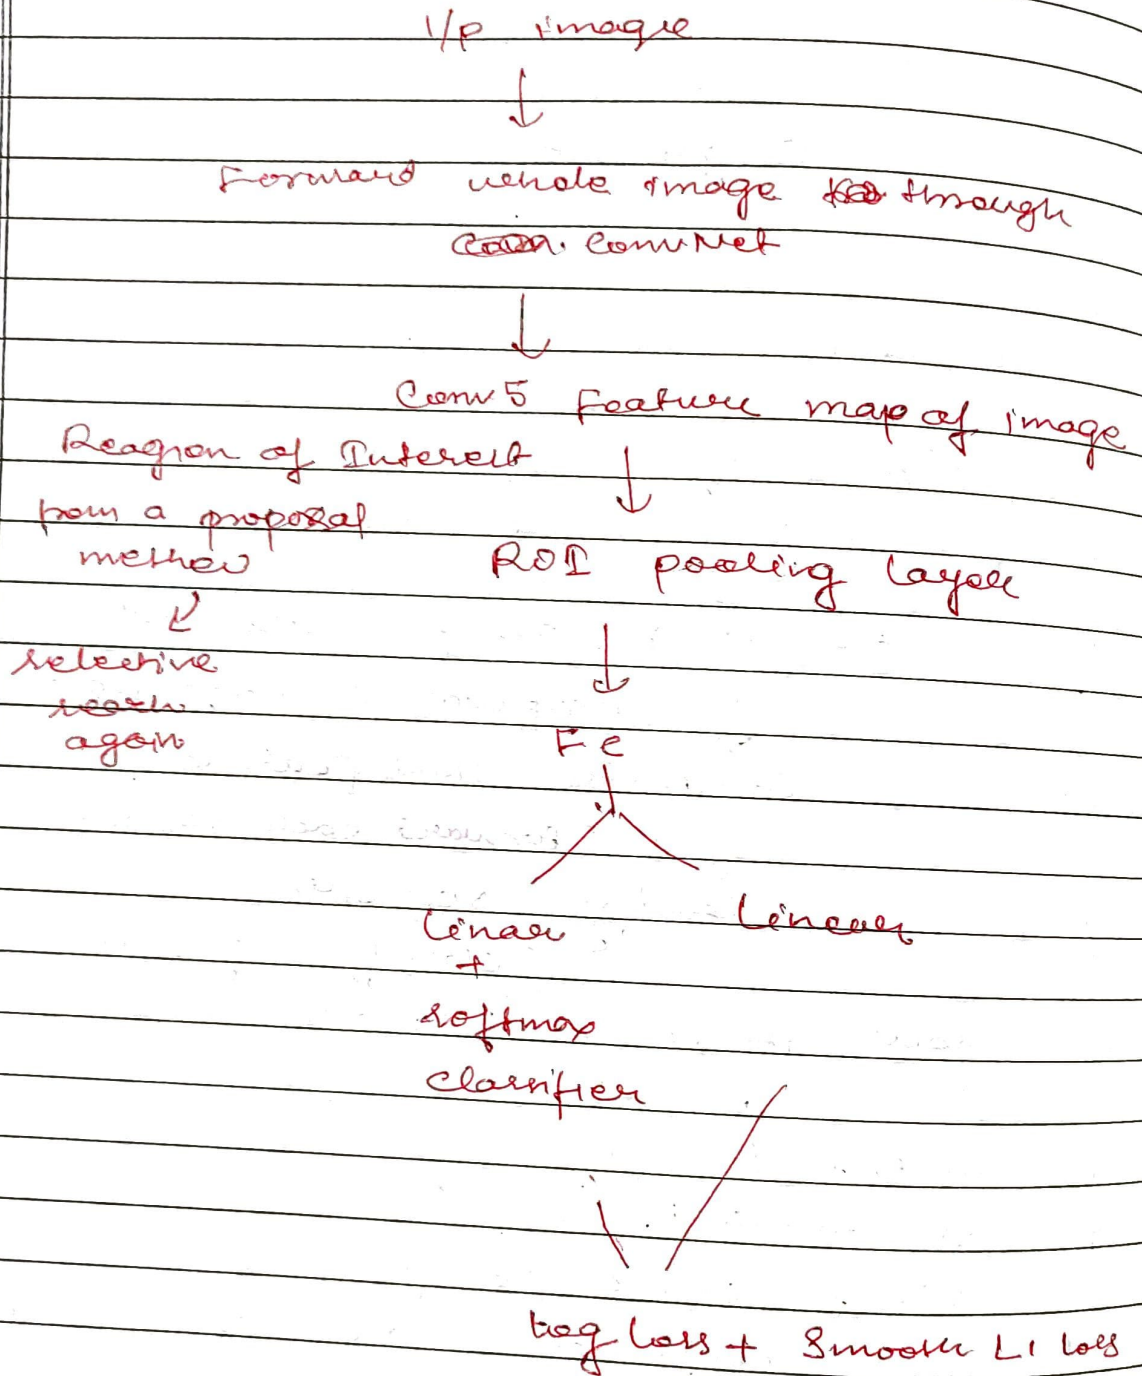 I/P image
Forward whole image through
ConvNet
Conv5 Feature map of image
Reagion of Interest
from a proposal
method
ROI pooling layer
selective
search
again
FC
Linear
Linear
+
softmax
classifier
log loss + Smooth L1 loss